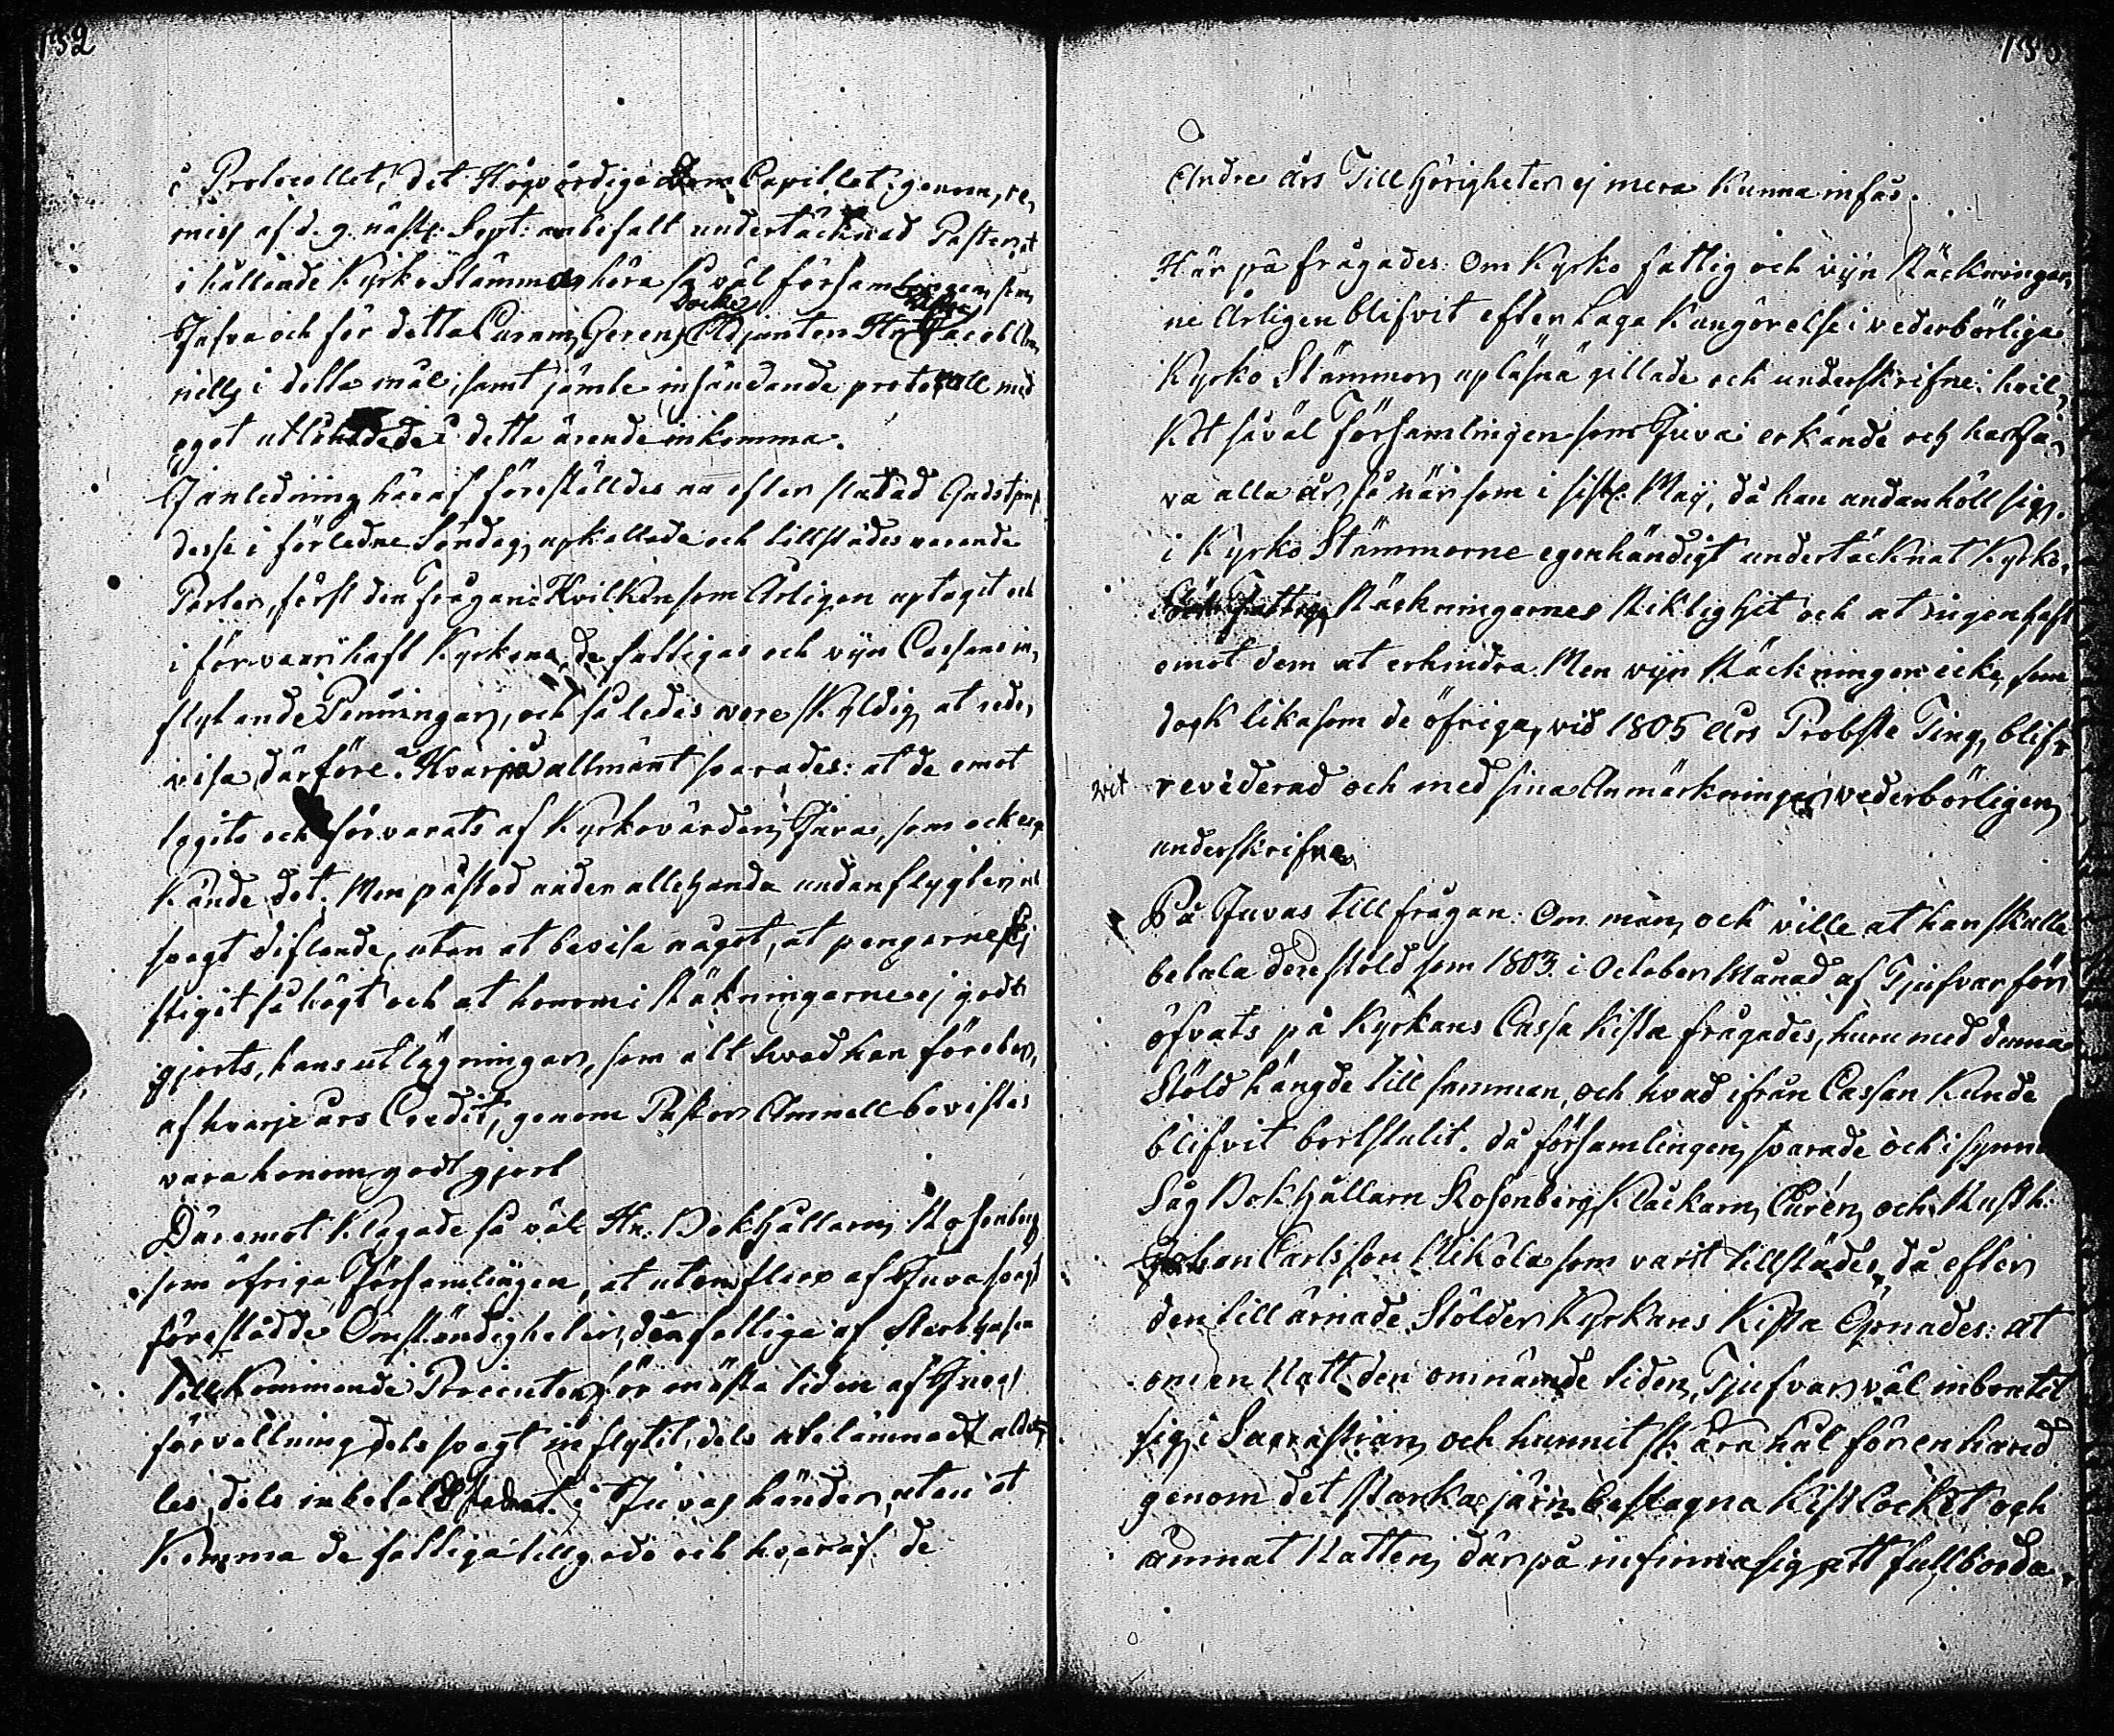 132
i Protocollet, det Högvördige Dom Capitlet, genom re,
miss af d. 9. näst: Sept: anbefalt undertäcknad Pastor, at
i hållande Kyrko Stämma höra så väl församlingen, som
Juva och för detta Curam Gerens Adjuncten Hr Jacob Am,
nell, i detta mål, samt jämte insändande protocoll med
eget utlåtande i detta ärende inkomma.
I anledning häraf föreställdes nu efter slutad Gudstjenst
desse i förledne Söndag, upkallade och tillstädes varande
Parter, först den frågan: Hvilken som Årligen uptagit och
i förvar haft Kyrkans, de fattigas och vijn Cassans in,
flytande Penningar, och således vore skyldig at redo,
visa därföre? Hvarpå allmänt svarades: at de emot
tagits och förvarats af Kyrkovärden Juva, som ock er,
kände det. Men påstod under allehanda undanflygter och
svagt diflande, utan at bevisa något, at pengarne ej
stigit så högt och at honom i Räkningarne ej godt
gjorts, hans utlägningar, som alt hvad han förebar,
af hvarje års Credit, genom Pastor Amnell bevistes
vara honom godtgjort
Däremot klagade så väl Hr. Bokhållarn Rosenberg
som öfriga Församlingen, at utom flere af Juva svagt
förestådde Omständigheter, den fattige af Sterbhusen
tillkommande Procenten för mästa tiden af Juvas
förvaltning dels svagt in flytit, dels utelämnadt aldeles
les, dels inbetaldt stadnat i Juvas händer, utan at
komma de fattiga tillgodo och hvaraf de
133
Andre års Tillhörigheter ej mera kunna infås.
Här på frågades: Om Kyrko fattig och vijn Räckningar,
ne Årligen blifvit efter Laga Kungörelse i vederbörlige
Kyrko Stämmor upläsna gillade och underskrifne: hvil,
ket såväl Församlingen som Juva erkände och har Ju,
va alla år, så när som i sistl. Maij, då han undanhöll sig,
i Kyrko Stämmorne egenhändigt undertäcknat Kyrko,
och Fattig Räckningarnes Riktighet och at ingen haft
emot dem at erhindra. Men vijn Räckningen icke, som
dock likasom de öfriga, vid 1805 Års Probste Ting, blif,
vit reviderad och med sina Anmärkningar vederbörligen
underskrifne.
På Juvas tillfrågan: Om man och ville at han skulle
betala den stöld som 1803 i October Månad af Tjufvar för
öfvats på Kyrkans Cassa Kista frågades, huru med denna
Stöld hängde tillsamman, och hvad ifrån Cassan kunde
blifvit bortstulit. då församlingen svarade och i synn
Såg Bokhållarn Rosenberg, Klåckarn Curén, och Rusth:
Johan Carlsson Mikola som varit tillstädes, då efter
den tillärnade Stölden Kyrkans Kista Öpnades: at
om en Natt den omnämde tiden, Tjufvar väl inbrutit
sig i Sacrastian, och hunnit skära hål för en hand
genom det starka järn beslagna Kistlocket och
ämnat Natten därpå infinna sig att fullborda